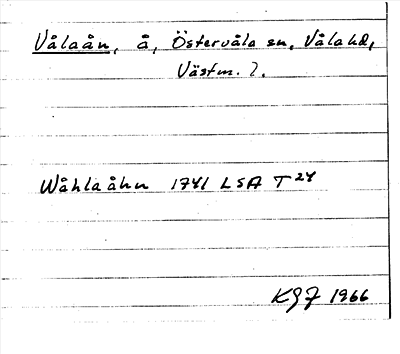 Vålaån, å, Östervåla sn, Våla hd,
Västm. l.
Wåhlaåhn 1741 LSA T 24
KGJ 1966